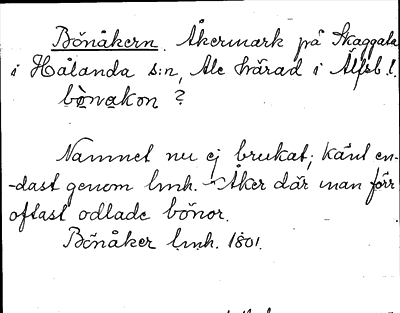 Bönåkern. Åkermark på Skaggala
i Hålanda s:n, Ale härad i Älfsb. l.
bònakon ?
Namnet nu ej brukat; känt en-
-dast genom lmh. - Åker där man förr
oftast odlade bönor.
Bönåker lmh. 1801.